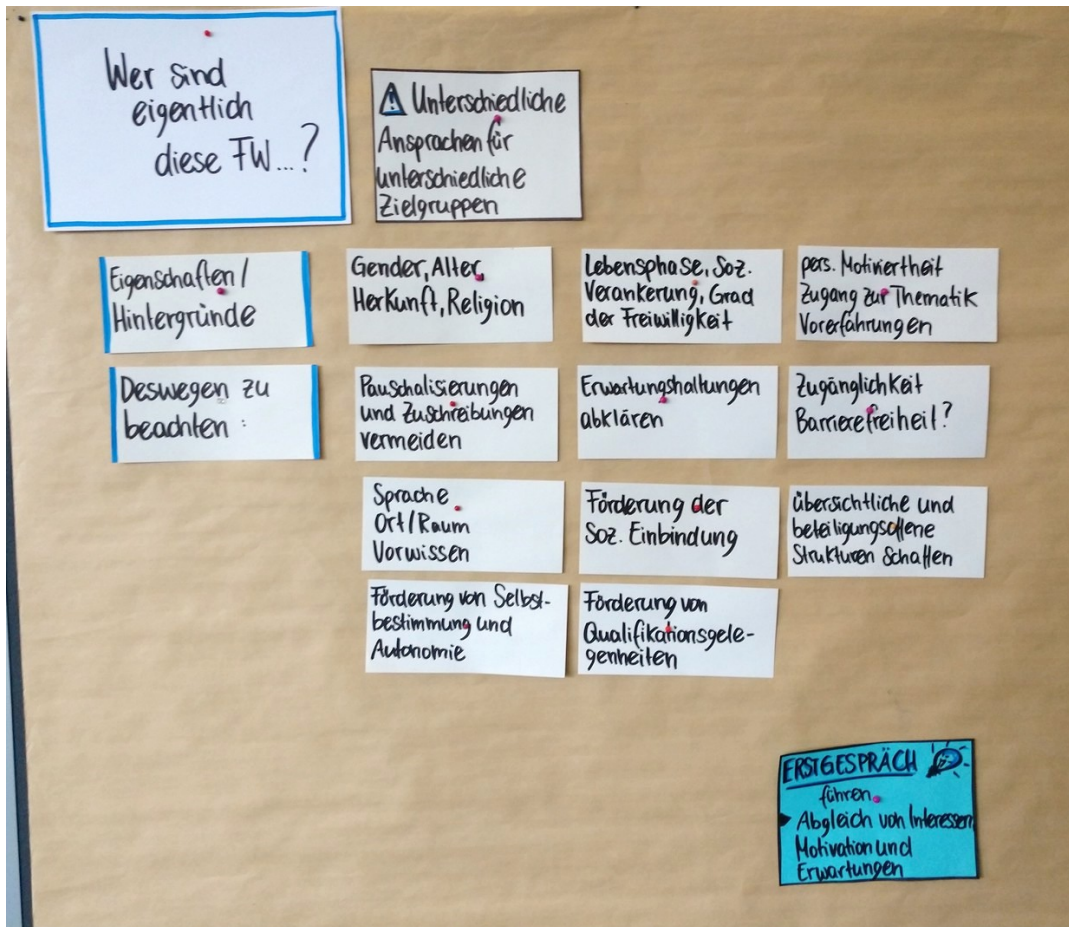 Wer sind
eigentlich
diese FW...?
⚠ Unterschiedliche
Ansprachen für
unterschiedliche
Zielgruppen
Eigenschaften/
Hintergründe
Gender, Alter,
Herkunft, Religion
Lebensphase, Soz.
Verankerung, Grad
der Freiwilligkeit
pers. Motiviertheit
Zugang zur Thematik
Vorerfahrungen
Deswegen zu
beachten:
Pauschalisierungen
und Zuschreibungen
vermeiden
Erwartungshaltungen
abklären
Zugänglichkeit
Barrierefreiheit?
Sprache
Ort/Raum
Vorwissen
Förderung der
Soz. Einbindung
übersichtliche und
beteiligungsoffene
Strukturen schaffen
Förderung von Selbst-
bestimmung und
Autonomie
Förderung von
Qualifikationsgele-
genheiten
ERSTGESPRÄCH
führen
Abgleich von Interessen
Motivation und
Erwartungen